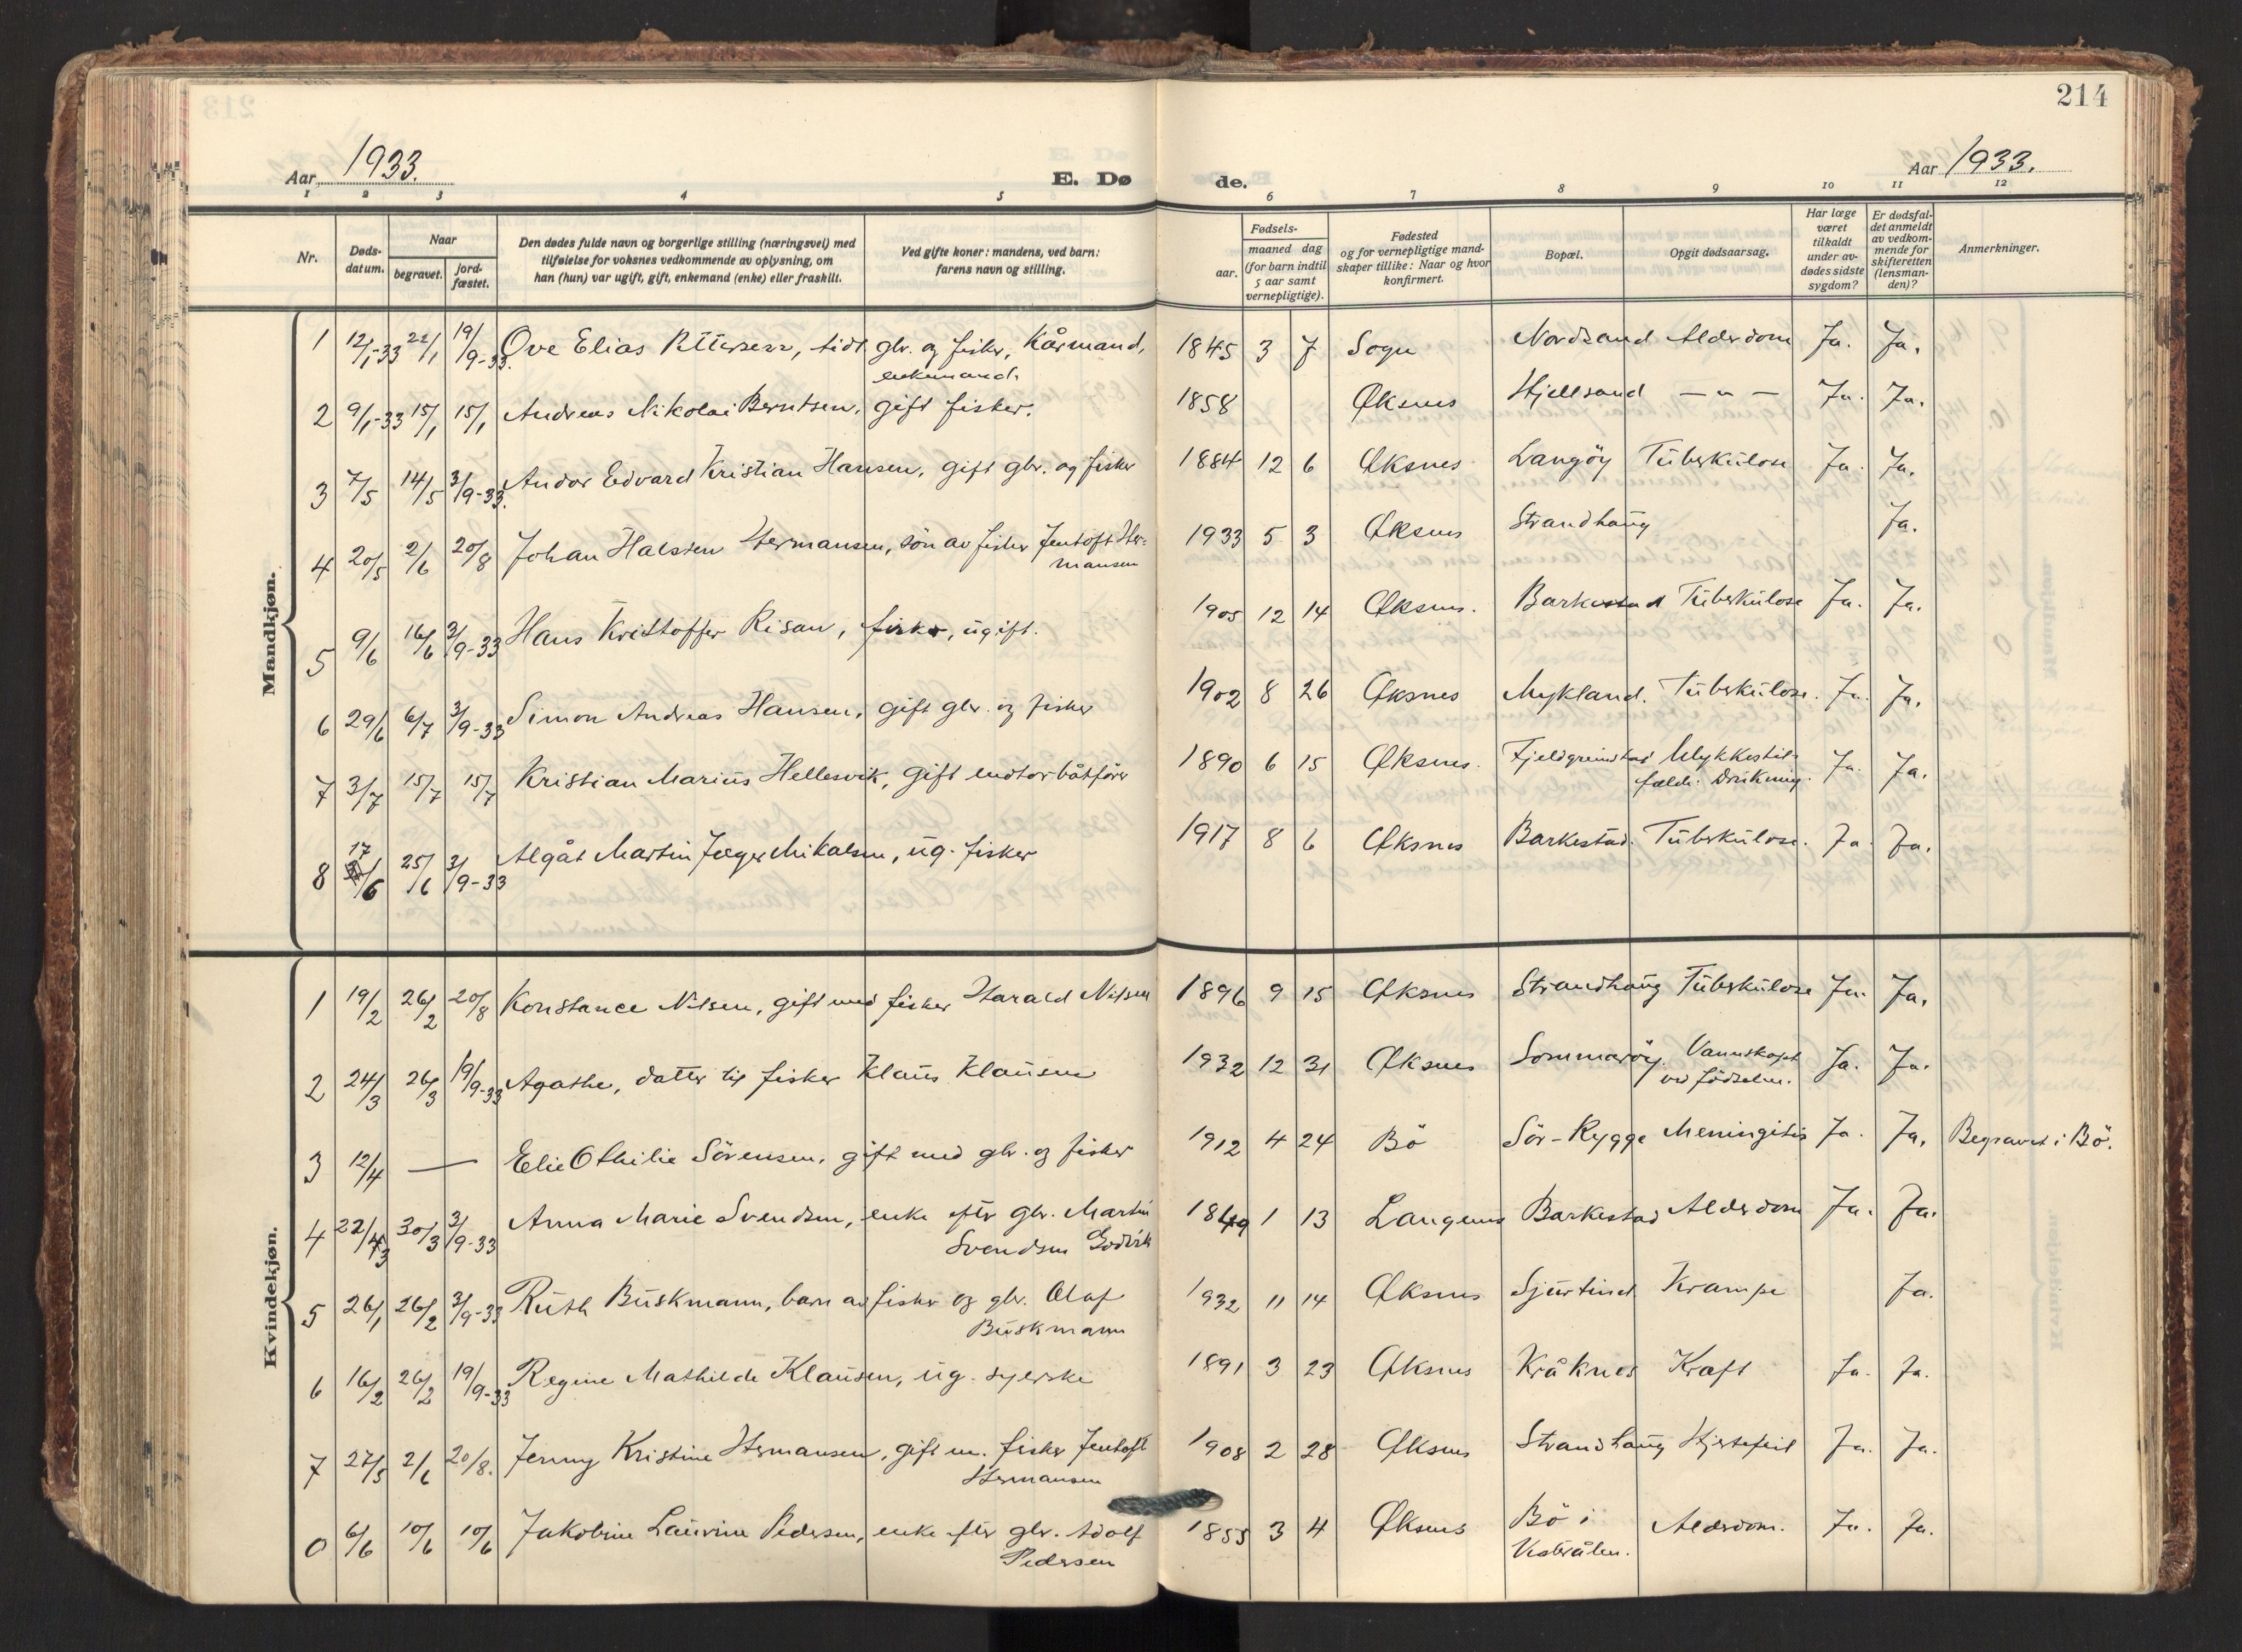 214
Aar 1933.
E. Dø
de.
Aar 1933.
1 2 3 4 5 6 7 8 9 10 11 12
Nr.
Døds-
datum.
Naar
begravet.
jord-
fæstet.
Den dødes fulde navn og borgerlige stilling (næringsvei) med
tilføielse for voksnes vedkommende av oplysning, om
han (hun) var ugift, gift, enkemand (enke) eller fraskilt.
Ved gifte koner: mandens, ved barn:
farens navn og stilling.
Fødsels-
aar.
maaned dag
(for barn indtil
5 aar samt
vernepligtige).
Fødested
og for vernepligtige mand-
skaper tillike: Naar og hvor
konfirmert.
Bopæl.
Opgit dødsaarsag.
Har læge
været
tilkaldt
under av-
dødes sidste
sygdom?
Er dødsfal-
det anmeldt
av vedkom-
mende for
skifteretten
(lensman-
den)?
Anmerkninger.
Mandkjøn.
1 12/1-33 22/1 19/9-33. Ove Elias Pettersen, tidl. gbr. og fisker, Kårmand, 1845 3 7 Sogn Nordsand Alderdom Ja. Ja.
enkemand.
2 9/1-33 15/1 15/1 Andreas Nikolai Berntsen, gift fisker. 1858 Øksnes Hjellsand — " — Ja. Ja.
3 7/5 14/5 3/9-33. Andor Edvard Kristian Hansen, gift gbr. og fisker 1884 12 6 Øksnes Langöy Tüberkülose Ja. Ja.
4 20/5 2/6 20/8 Johan Halsten Hermansen, sön av fisker Jentoft Her- 1933 5 3 Øksnes Strandhaüg Ja.
mansen
5 9/6 16/6 3/9-33 Hans Kristoffer Risan, fisker, ügift. 1905 12 14 Øksnes. Barkestad Tüberkülose Ja. Ja.
6 29/6 6/7 3/9-33 Simon Andreas Hansen, gift gbr. og fisker 1902 8 26 Øksnes Mykland. Tüberkülose. Ja. Ja.
7 3/7 15/7 15/7 Kristian Mariüs Hellesvik, gift motorbåtförer 1890 6 15 Øksnes. Fjeldgrimstad Ulykkestil- Ja. Ja.
fælde: Drükning.
8 17/6 25/6 3/9-33 Algåt Martin Jæger Mikalsen, üg. fisker 1917 8 6 Øksnes Barkestad. Tüberkülose. Ja. Ja.
Kvindekjøn.
1 19/2 26/2 20/8 Konstance Nilsen, gift med fisker Harald Nilsen 1896 9 15 Øksnes Strandhaüg Tüberkülose Ja. Ja.
2 24/3 26/3 19/9-33 Agathe, datter til fisker Klaüs Klaüsen 1932 12 31 Øksnes Sommaröy. Vannskapt Ja. Ja.
ved födselen.
3 12/4 — Elie Othilie Sörensen, gift med gbr. og fisker 1912 4 24 Bö Sör-Rygge Meningitis Ja. Ja. Begravet i Bö.
4 22/3 30/3 3/9-33 Anna Marie Svendsen, enke efter gbr. Martin 1849 1 13 Langenes Barkestad Alderdom Ja. Ja.
Svendsen Godvik
5 26/1 26/2 3/9-33 Rüth Büskmann, barn av fisker og gbr. Olaf 1932 11 14 Øksnes Sjürtind Krampe Ja.
Büskmann
6 16/2 26/2 19/9-33 Regine Mathilde Klaüsen, üg. syerske 1891 3 23 Øksnes Kråknes Kræft Ja. Ja.
7 27/5 2/6 20/8. Jenny Kristine Hermansen, gift m. fisker Jentoft 1908 2 28 Øksnes Strandhaüg Hjertefeil Ja. Ja.
Hermansen
0 6/6 10/6 10/6 Jakobine Laürine Pedersen, enke efter gbr. Adolf 1855 3 4 Øksnes Bö i Alderdom. Ja. Ja.
Pedersen Vesterålen.